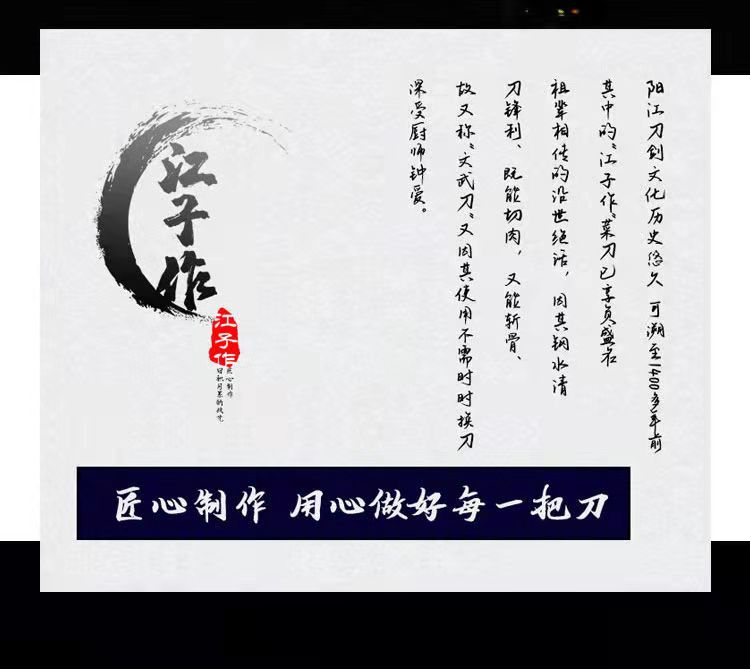 阳江刀剑文化历史悠久 可溯至1400多年前
其中的“江子作”菜刀已享负盛名
祖辈相传的沿世绝活，因其钢水清
刀锋利、既能切肉，又能斩骨、
故又称“文武刀”又因其使用不需时时换刀
深受厨师钟爱。
江子作
江子作
匠心制作
日积月累的技艺
匠心制作 用心做好每一把刀